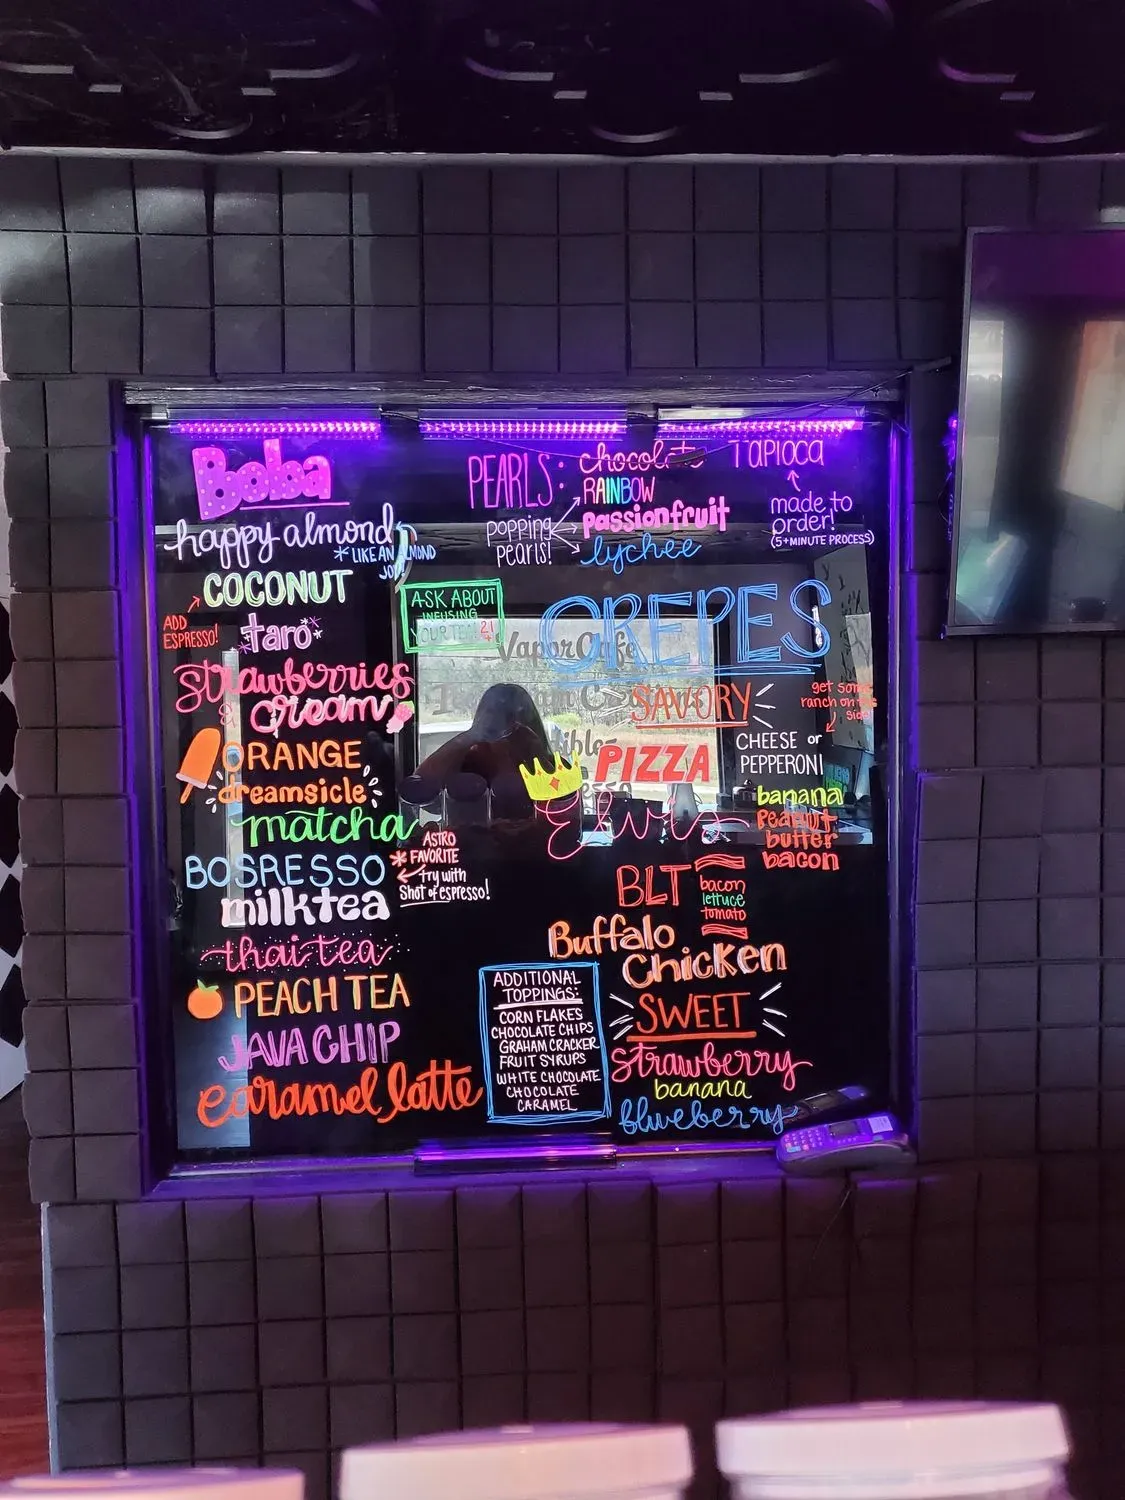 Boba
happy almond
* LIKE AN ALMOND
JOY!
COCONUT
ADD
ESPRESSO!
taro
strawberries
& cream
ORANGE
dreamsicle
matcha
BOSPRESSO
milktea
* ASTRO
FAVORITE
try with
Shot of espresso!
thai tea
PEACH TEA
JAVA CHIP
caramel latte
PEARLS: chocolate
RAINBOW
popping
pearls!
passionfruit
lychee
TAPIOCA
made to
order!
(5+MINUTE PROCESS)
ASK ABOUT
INFUSING
21
Vapor Cafe
CREPES
SAVORY
get some
ranch on the
side!
PIZZA
CHEESE or
PEPPERONI
Elvis
banana
Peanut
butter
bacon
BLT
bacon
lettuce
tomato
Buffalo
Chicken
ADDITIONAL
TOPPINGS:
CORN FLAKES
CHOCOLATE CHIPS
GRAHAM CRACKER
FRUIT SYRUPS
WHITE CHOCOLATE
CHOCOLATE
CARAMEL
SWEET
strawberry
banana
blueberry